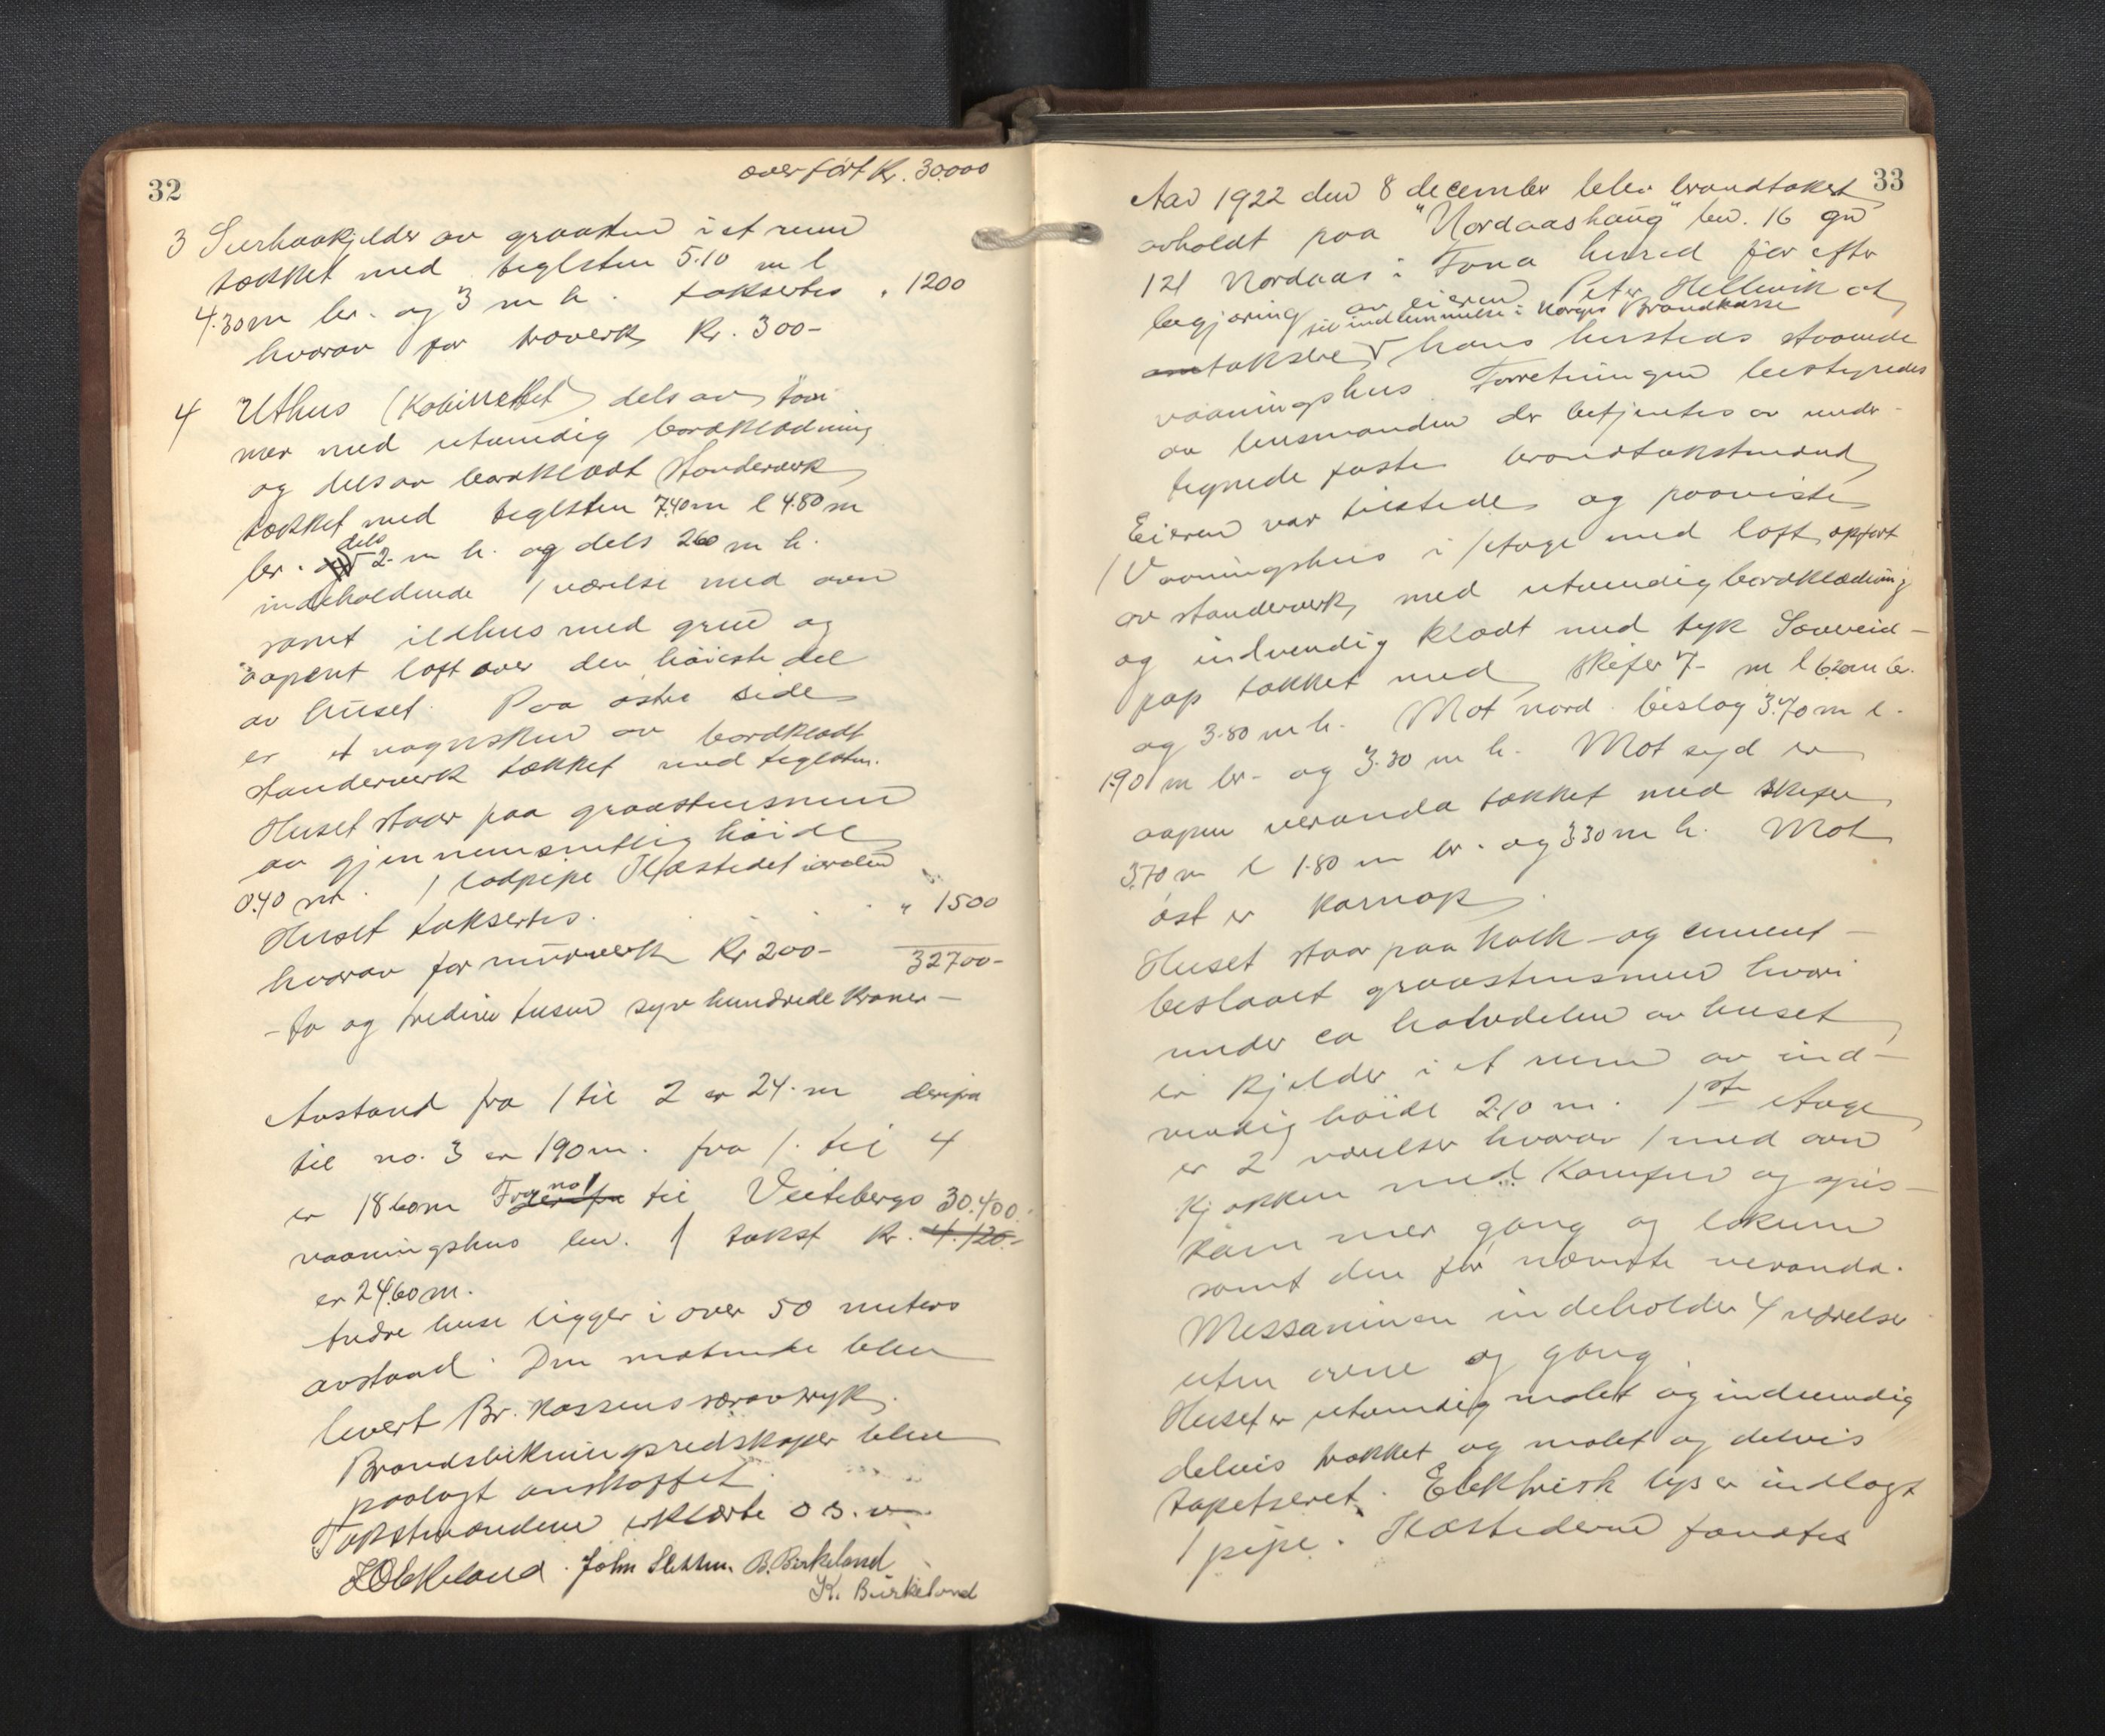 32
overført Kr. 30000
3 Surhaakjelder av graasten i et rum
tækket med teglsten 5.10 m l
4.30 m br. og 3 m h. takseres " 1200
hvorav for træverk Kr. 300-
4 Uthus (Kabinettet) dels av töm
mer med utvendig bordklædning
og dels av bordklædt standerverk
tækket med teglsten 7.40 m l 4.80 m
br. dels 2- m h. og dels 260 m h.
indeholdende 1 værelse med ovn
samt ildhus med grue og
aapent loft over den höieste del
av huset. Paa østre side
er et vognskur av bordklædt
standerverk tækket med teglsten.
Huset staar paa graastensmur
av gjennemsnitlig höide
0.40 m. 1 lodpipe Ildstedet
Huset takseres " 1500
hvorav for murverk Kr 200- 32700-
- to og tredive tusen syv hundrede kroner -
Avstand fra 1 til 2 er 24. m derfra
til no. 3 er 190 m. fra 1. til 4
er 1860m Fra no 1 derfra til Veitebergs
vaaningshus br. 1 takst Kr. 4.120.- 30.400.
er 2460 m.
Andre huse ligger i over 50 meters
avstand. Den møtende blev
levert Br. Kassens særavtryk.
Brandslukningsredskaper blev
paalagt anskaffet.
Takstmændene erklærte o s. v.
Birkeland. John Sletten. B. Birkeland
K. Birkeland
33
Aar 1922 den 8 december blev brandtakst
avholdt paa "Nordaashaug" br. 16 gn
121 Nordaas i Fana herred for efter
begjæring av eieren Peter Hellevik at
til indlemmelse i Norges Brandkasse
omtaksere hans hersteds staaende
vaaningshus. Forretningen bestyredes
av lensmanden der betjentes av under-
tegnede faste brandtakstmænd
Eieren var tilstede og paaviste
1 Vaaningshus i 1 etage med loft opført
av standerverk med utvendig bordklædning
og indvendig klædt med tyk
pap tækket med skifer 7- m l 6.20m b.
og 3.80 m h. Mot nord bislag 3.70 m l.
1.90 m br- og 3.30 m h. Mot syd er
aapen veranda tækket med skifer
3.70 m l 1.80 m br. og 3.30 m h. Mot
øst er karnap.
Huset staar paa kalk- og cement-
beslaaet graastensmur hvori
under ca halvdelen av huset
er kjelder i et rum av ind-
vendig höide 2.10 m. 1ste etage
er 2 værelser hvorav 1 med ovn
kjøkken med komfur og spis-
kammer gang og lokum
samt den før nævnte veranda.
Messaninen indeholder 4 værelser
uten ovne og gang
Huset er utvendig malet og indvendig
delvis trækket og malet og delvis
tapetseret. Elektrisk lys er indlagt
1 pipe. Ildstederne fandtes